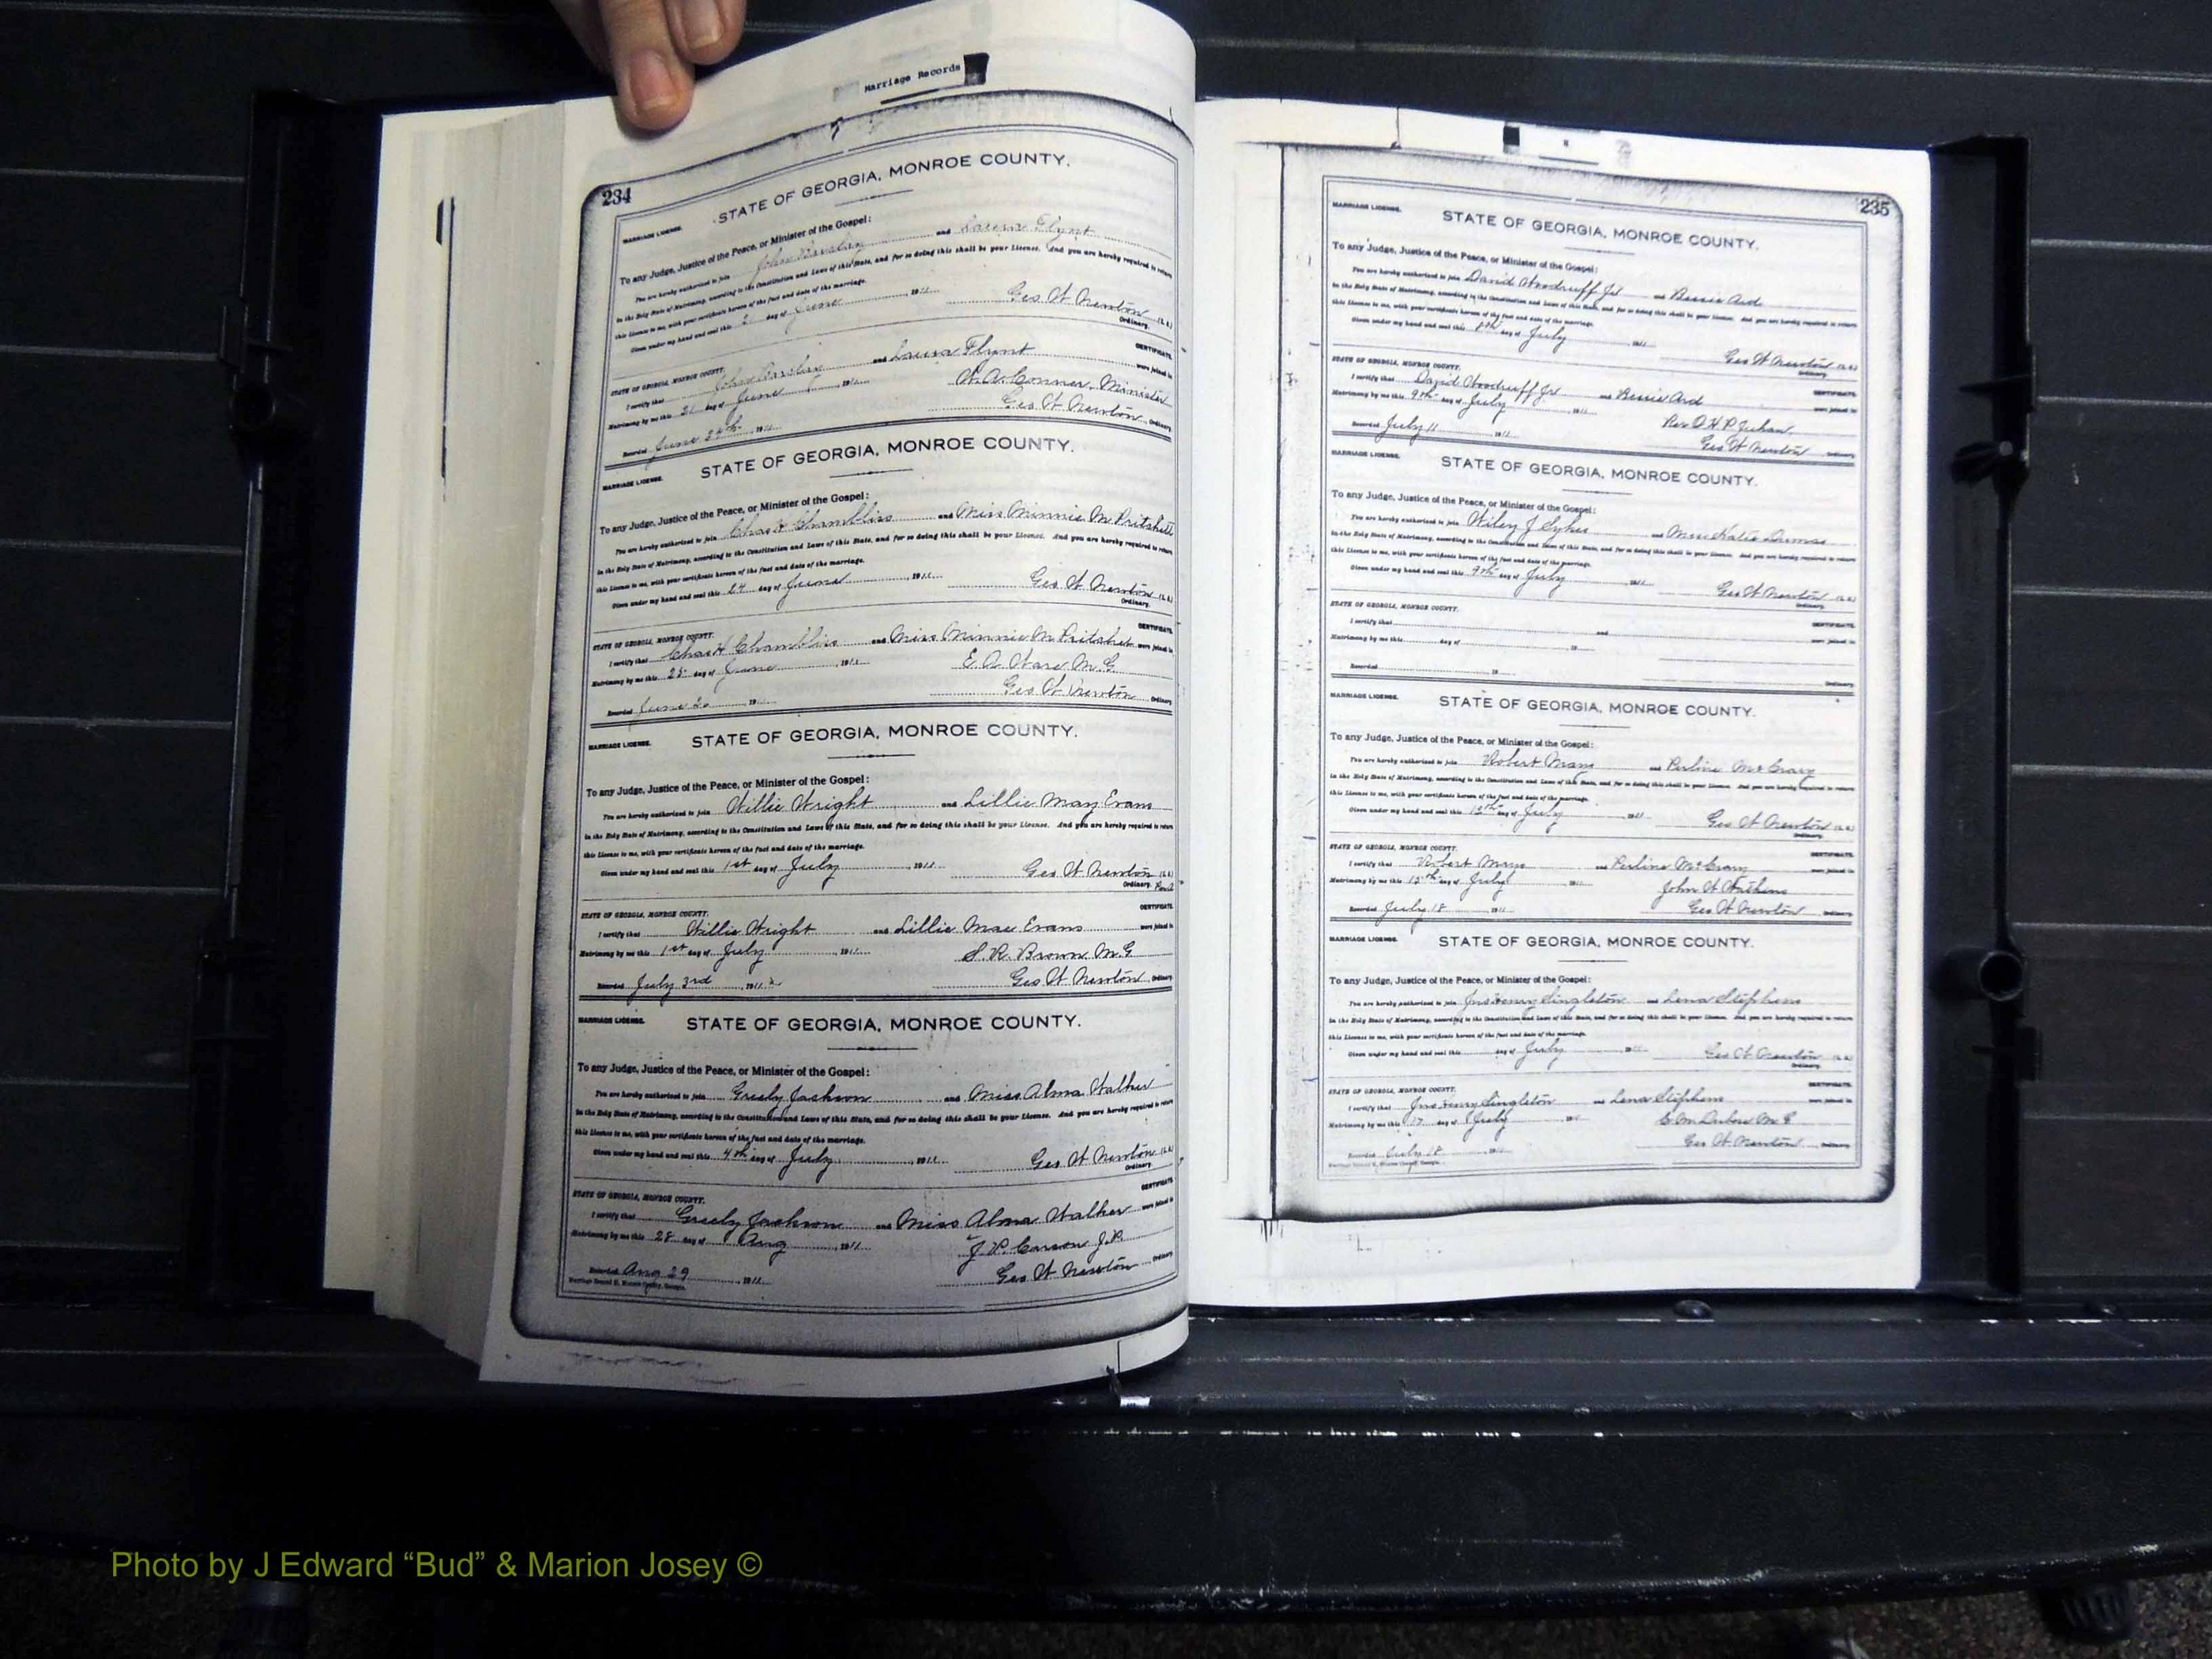 Marriage Records
234
STATE OF GEORGIA, MONROE COUNTY.
MARRIAGE LICENSE.
To any Judge, Justice of the Peace, or Minister of the Gospel:
You are hereby authorized to join John and Laura Flynt
in the Holy State of Matrimony, according to the Constitution and Laws of this State, and for so doing this shall be your License. And you are hereby required to return
this License to me, with your certificate hereon of the fact and date of the marriage.
Given under my hand and seal this day of June 1911
Geo W Newton (L.S.)
Ordinary.
CERTIFICATE.
STATE OF GEORGIA, MONROE COUNTY.
I certify that John and Laura Flynt were joined in
Matrimony by me this day of June 1911 W. A. Conner, Minister
Recorded June 24th 1911 Geo W Newton Ordinary
MARRIAGE LICENSE.
STATE OF GEORGIA, MONROE COUNTY.
To any Judge, Justice of the Peace, or Minister of the Gospel:
You are hereby authorized to join Chas H Chambliss and Miss Minnie M Pritchett
in the Holy State of Matrimony, according to the Constitution and Laws of this State, and for so doing this shall be your License. And you are hereby required to return
this License to me, with your certificate hereon of the fact and date of the marriage.
Given under my hand and seal this 24 day of June 1911 Geo W Newton (L.S.)
Ordinary.
CERTIFICATE.
STATE OF GEORGIA, MONROE COUNTY.
I certify that Chas H Chambliss and Miss Minnie M Pritchett were joined in
Matrimony by me this 25 day of June 1911 E. A. Ware M.G
Recorded June 1911 Geo W Newton Ordinary
MARRIAGE LICENSE.
STATE OF GEORGIA, MONROE COUNTY.
To any Judge, Justice of the Peace, or Minister of the Gospel:
You are hereby authorized to join Willie Wright and Lillie May Evans
in the Holy State of Matrimony, according to the Constitution and Laws of this State, and for so doing this shall be your License. And you are hereby required to return
this License to me, with your certificate hereon of the fact and date of the marriage.
Given under my hand and seal this 1st day of July 1911 Geo W Newton (L.S.)
Ordinary.
CERTIFICATE.
STATE OF GEORGIA, MONROE COUNTY.
I certify that Willie Wright and Lillie Mae Evans were joined in
Matrimony by me this 1st day of July 1911 S. R. Brown M.G
Recorded July 3rd 1911 Geo W Newton Ordinary
MARRIAGE LICENSE.
STATE OF GEORGIA, MONROE COUNTY.
To any Judge, Justice of the Peace, or Minister of the Gospel:
You are hereby authorized to join Greely Jackson and Miss Alma Walker
in the Holy State of Matrimony, according to the Constitution and Laws of this State, and for so doing this shall be your License. And you are hereby required to return
this License to me, with your certificate hereon of the fact and date of the marriage.
Given under my hand and seal this 4th day of July 1911 Geo W Newton (L.S.)
Ordinary.
CERTIFICATE.
STATE OF GEORGIA, MONROE COUNTY.
I certify that Greely Jackson and Miss Alma Walker were joined in
Matrimony by me this 28 day of Aug 1911 J. P. Carson J.P.
Recorded Aug 29 1911 Geo W Newton Ordinary
235
MARRIAGE LICENSE.
STATE OF GEORGIA, MONROE COUNTY.
To any Judge, Justice of the Peace, or Minister of the Gospel:
You are hereby authorized to join David Woodruff Jr and Bessie Ard
in the Holy State of Matrimony, according to the Constitution and Laws of this State, and for so doing this shall be your License. And you are hereby required to return
this License to me, with your certificate hereon of the fact and date of the marriage.
Given under my hand and seal this 8th day of July 1911
Geo W Newton (L.S.)
Ordinary.
STATE OF GEORGIA, MONROE COUNTY.
CERTIFICATE.
I certify that David Woodruff Jr and Bessie Ard were joined in
Matrimony by me this 9th day of July 1911 Rev O. H. P. Juhan
Recorded July 11 1911 Geo W Newton Ordinary
MARRIAGE LICENSE.
STATE OF GEORGIA, MONROE COUNTY.
To any Judge, Justice of the Peace, or Minister of the Gospel:
You are hereby authorized to join Wiley J Sykes and Miss Katie Dumas
in the Holy State of Matrimony, according to the Constitution and Laws of this State, and for so doing this shall be your License. And you are hereby required to return
this License to me, with your certificate hereon of the fact and date of the marriage.
Given under my hand and seal this 9th day of July 1911 Geo W Newton (L.S.)
Ordinary.
STATE OF GEORGIA, MONROE COUNTY.
CERTIFICATE.
I certify that and were joined in
Matrimony by me this day of 19
Recorded 19
Ordinary.
MARRIAGE LICENSE.
STATE OF GEORGIA, MONROE COUNTY.
To any Judge, Justice of the Peace, or Minister of the Gospel:
You are hereby authorized to join Robert Mays and Perline McCrary
in the Holy State of Matrimony, according to the Constitution and Laws of this State, and for so doing this shall be your License. And you are hereby required to return
this License to me, with your certificate hereon of the fact and date of the marriage.
Given under my hand and seal this day of July 1911 Geo W Newton (L.S.)
Ordinary.
STATE OF GEORGIA, MONROE COUNTY.
CERTIFICATE.
I certify that Robert Mays and Perline McCrary were joined in
Matrimony by me this day of July 1911 John W Watkins
Recorded July 18 1911 Geo W Newton Ordinary
MARRIAGE LICENSE.
STATE OF GEORGIA, MONROE COUNTY.
To any Judge, Justice of the Peace, or Minister of the Gospel:
You are hereby authorized to join Jno Henry Singleton and Lena Stephens
in the Holy State of Matrimony, according to the Constitution and Laws of this State, and for so doing this shall be your License. And you are hereby required to return
this License to me, with your certificate hereon of the fact and date of the marriage.
Given under my hand and seal this day of July 1911 Geo W Newton (L.S.)
Ordinary.
STATE OF GEORGIA, MONROE COUNTY.
CERTIFICATE.
I certify that Jno Henry Singleton and Lena Stephens were joined in
Matrimony by me this 17 day of July 1911 E M Dubose M G
Recorded July 18 1911 Geo W Newton Ordinary
Photo by J Edward “Bud” & Marion Josey ©